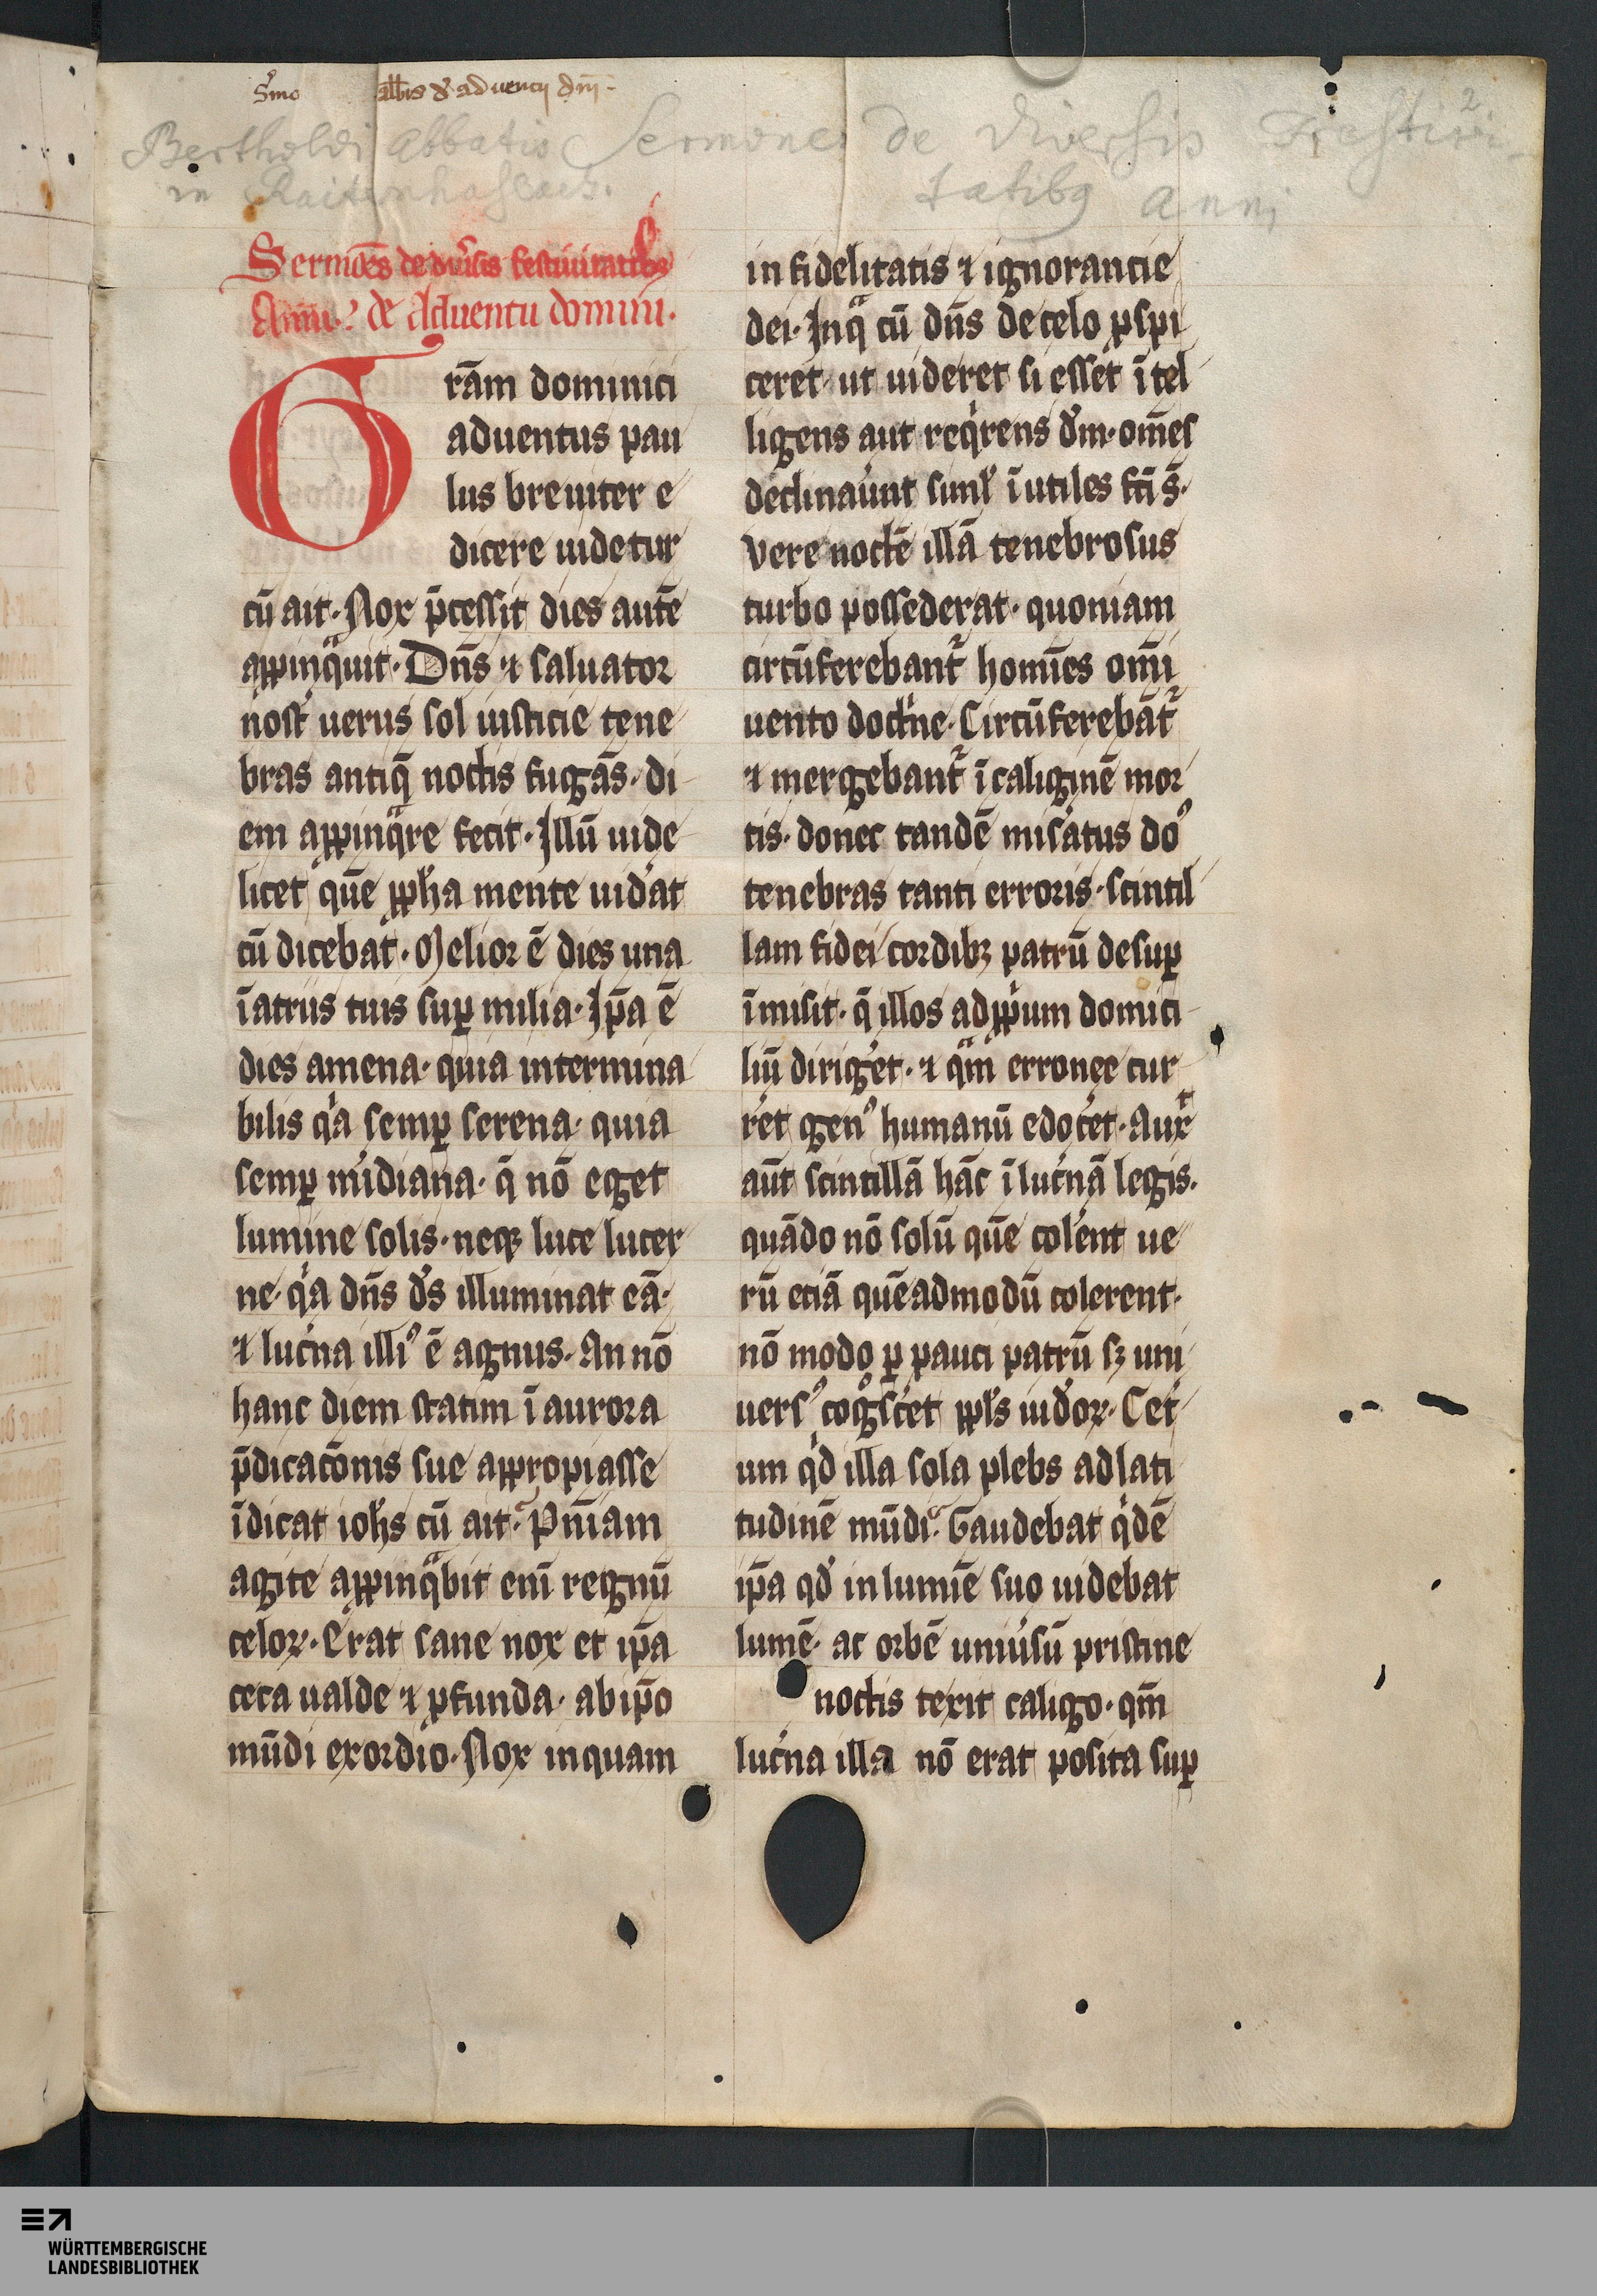 S͛mo abb̄is d͛ aduentu dn̄i
2
Bertholdi Abbatis Sermones de Diversis Festivi-
in Raitenhaslach. tatibꝯ Anni
Sermōes de diu͛sis festiuitatibꝯ
Anni. de Aduentu domini.
Orām dominici
aduentus pau
lus breuiter e
dicere uidetur
cū ait. Nox p̄cessit dies autē
aꝓpinqͣuit. Dn̄s ⁊ saluator
nost͛ uerus sol iusticie tene
bras antiq̄ noctis fugās. di
em aꝓpinqͣre fecit. Illū uide
licet quē ꝓph̄a mente uid͛at
cū dicebat. Melior ē dies una
ī atriis tuis suꝑ milia. Ip̄a ē
dies amena. quia intermina
bilis qͥa semꝑ serena. quia
semꝑ m͛idiana. q̄ nō eget
lumine solis. neqꝫ luce lucer
ne. qͥa dn̄s d͛s illuminat eā.
⁊ luc͛na illiꝰ ē agnus. An nō
hanc diem statim ī aurora
p̄dicatōnis sue appropiasse
īdicat ioh̄s cū ait. Pn̄iam
agite aꝓpinqͣbit enī regnū
celoꝝ. Erat sane nox et ip̄a
ceca ualde ⁊ ꝓfunda. ab ip̄o
mūdi exordio. Nox inquam
infidelitatis ⁊ ignorantie
dei. Inqͣ cū dn̄s de celo ꝓspi
ceret. ut uideret si esset ītel
ligens aut reqͥrens d͛m. om̄es
declinau͛unt simł īutiles fc̄i s̄.
Vere noctē illā tenebrosus
turbo possederat. quoniam
circūferebant᷑ homīes om̄i
uento doctͥne. Circūferebāt᷑
⁊ mergebant᷑ ī caliginē mor
tis. donec tandē mis͛atus doꝰ
tenebras tanti erroris. scintil
lam fidei cordibꝫ patrū desuꝑ
īmisit. q̄ illos ad ꝓpͥum domici
liū dirig͛et. ⁊ qͣm erronee cur
r͛et genꝰ humanū edoc͛et. Auxͭ
aūt scintillā hāc ī luc͛nā legis.
quādo nō solū quē col͛ent ue
rū eciā quēadmodū colerent.
nō modo ꝑ pauci patrū sꝫ uni
uersꝰ cogͦsc͛et ppl̄s iud͛oꝝ. Cet͛
um qͥd illa sola plebs ad lati
tudinē mūdi. Gaudebat qͥdē
ip̄a qd͛ in lumīe suo uidebat
lumē. ac orbē uniu͛sū pristine
noctis texit caligo. qm̄
luc͛na illa nō erat posita suꝑ
WÜRTTEMBERGISCHE
LANDESBIBLIOTHEK